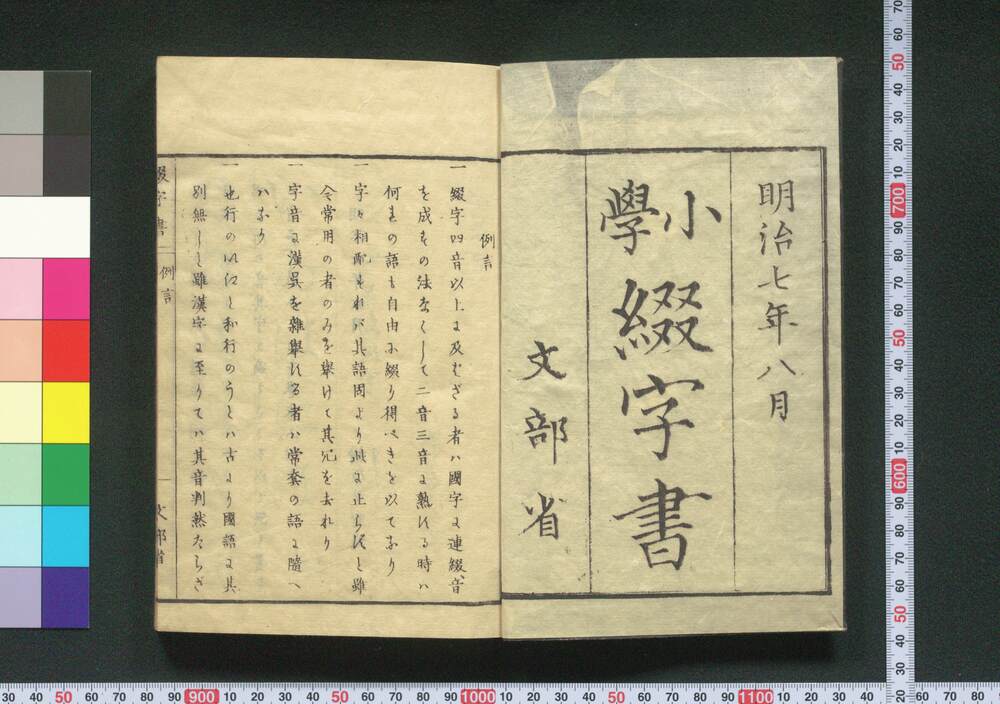 明治七年八月
小學
綴字書
文部省
例言
一 綴字四音以上ニ及ビざる者ハ國字ニ連綴音
を成すの法なくして二音三音ニ熟れる時ハ
何れの語も自由に綴り得べきを以てなり
一 字々相配すれバ其語固より此ニ止らずと雖
今常用の者のみを舉けて其冗を去れり
一 字音ニ漢呉を雜舉れる者ハ常套の語ニ隨へ
ハなり
一 也行のいえと和行のうとハ古より國語ニ其
別無しと雖漢字ニ至りてハ其音判然たらざ
綴字書
例言
一
文部省